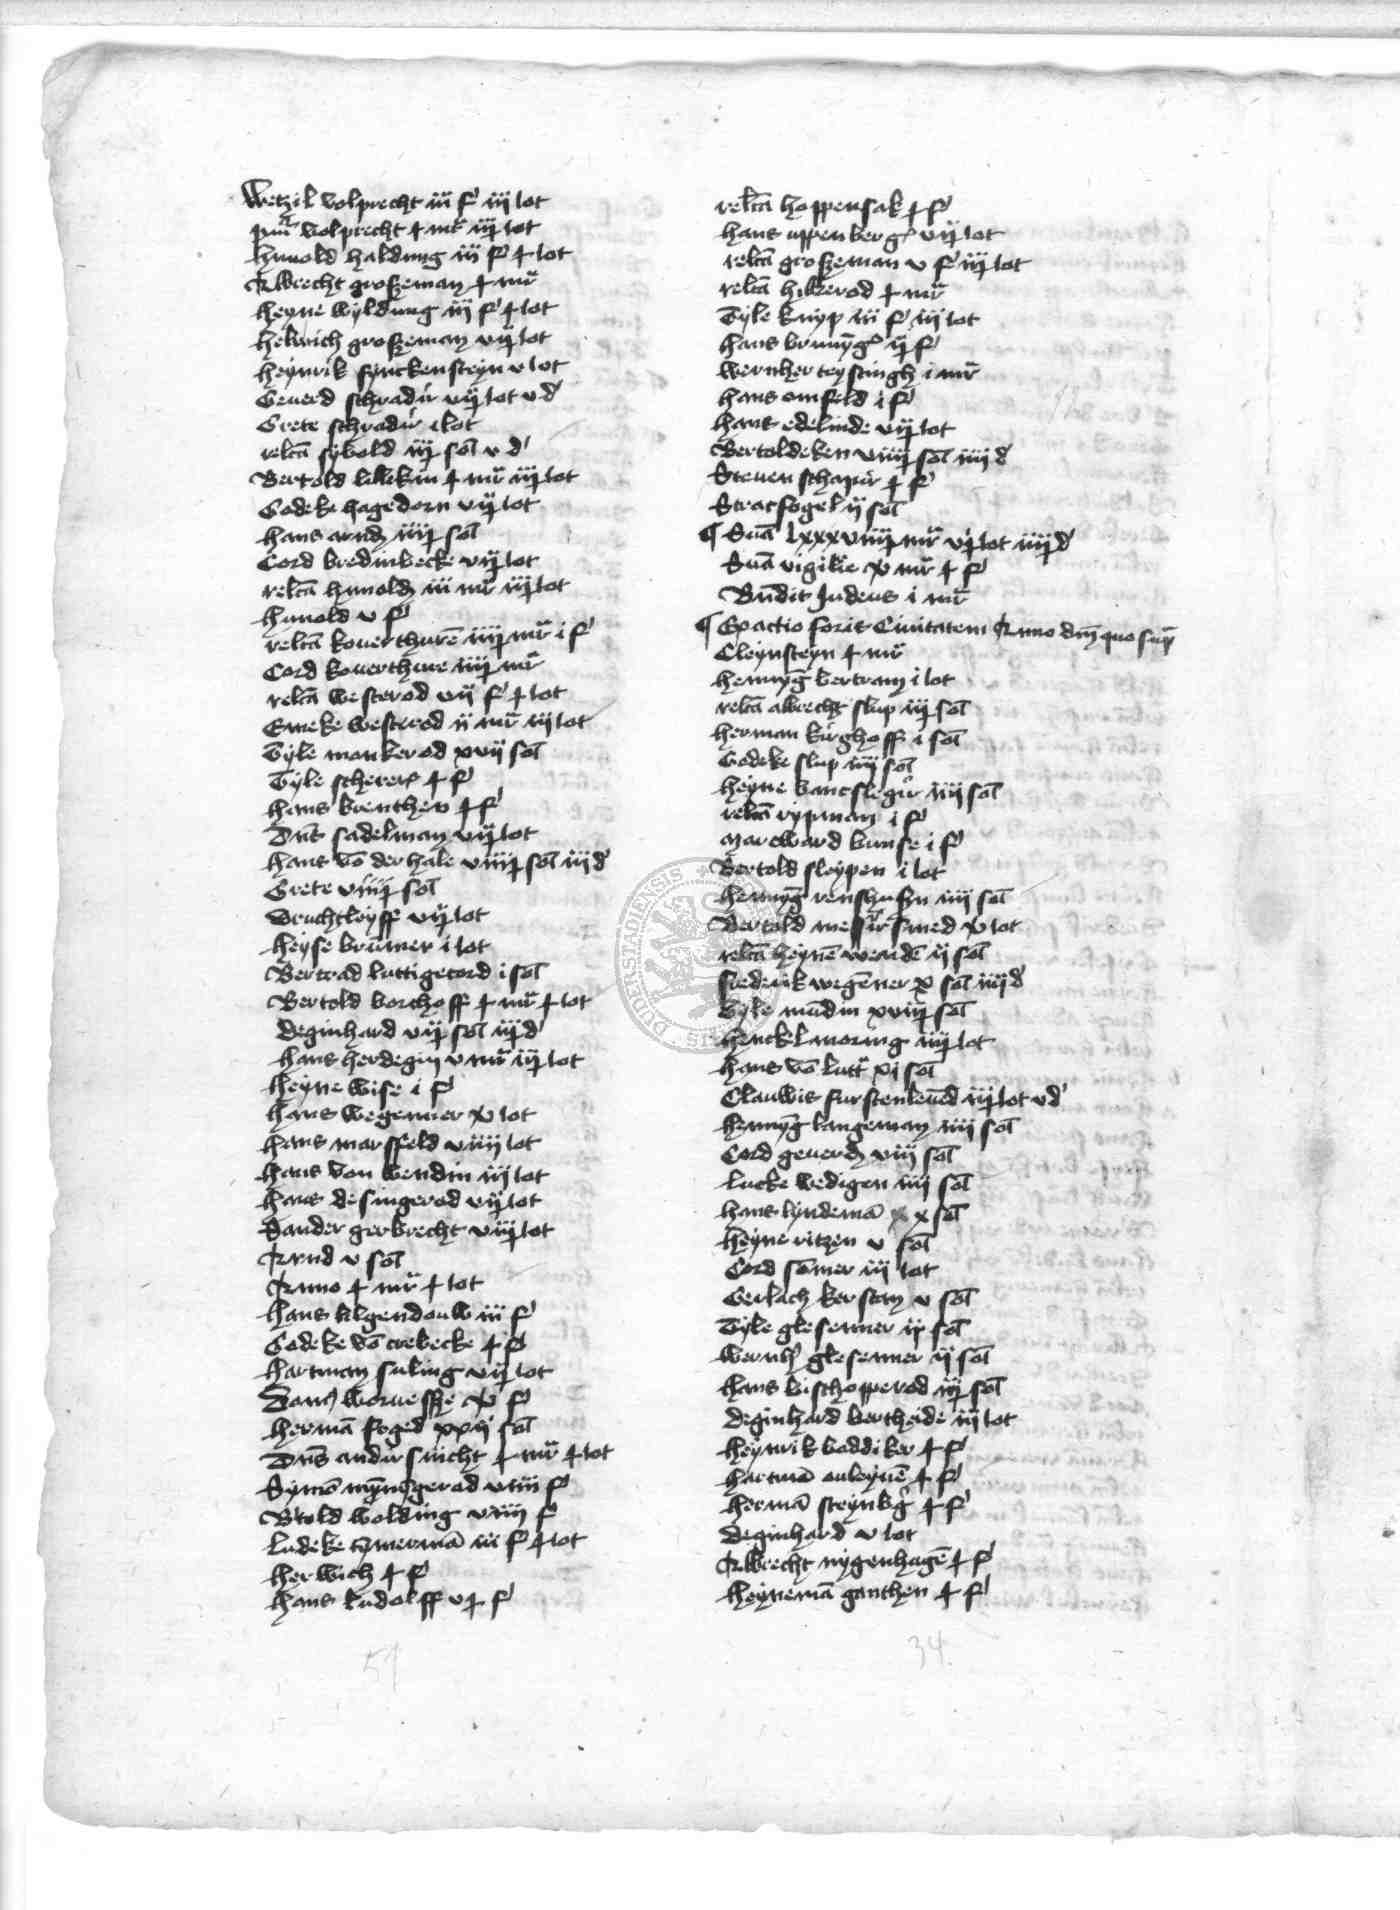 Wetzil volprecht iii f iij lot
volprecht ½ mr iij lot
hunold haldung iii f ½ lot
Albrecht groszeman ½ mr
heyne wyldung iii f ½ lot
helwich groszeman vij lot
heynrik fynckensteyn v lot
Geuerd schrader vij lot v d
Grete schrader i lot
relca sybold iij sol v d
Bertold ½ mr iij lot
Godeke hagedorn vij lot
hans arnd iiij sol
Cord bredinbecke vij lot
relca hunold iii mr iij lot
hunold v f
relca kouerthure iiij mr i f
Cord kouerthure iiij mr
relca westerod vij f ½ lot
Emeke westerod ii mr iij lot
Tyle monkerod xvij sol
Tyle scherer ½ f
hans brenthen ½ f
Dns sadelman vij lot
hans vo der hale viiij sol iij d
Grete viiij sol
vij lot
heyse brumer i lot
Bertrad luttigecord i sol
Bertold borchoff ½ mr ½ lot
Deginhard vij sol iij d
hans herdegin v mr iij lot
heyne wise i f
hans wegenner xv lot
hans marsfeld viiij lot
hans von wendin iij lot
hans desingerod vij lot
Sander gerbrecht viij lot
Arnd v sol
Anno ½ mr ½ lot
hans hilgendouw iii f
Godeke vo crebecke ½ f
hartman suling vij lot
xv f
herma foged xxij sol
Dns ½ mr ½ lot
Symo myngerod viiii f
Btold wolding viiii f
ludeke czmerma iii f ½ lot
herwich ½ f
hans ludolff v½ f
relca hoppensak ½ f
hans uppenberg vij lot
relca groszeman v f iij lot
relca hilkerod ½ mr
Tyle knyp iii f iij lot
hans brunyg ij f
wernher teystingh i mr
hans omfeld i f
hans edelinde vij lot
Bertoldeken viiij sol iiij d
Steuen schaper ½ f
Stracfogel ij sol
¶ Sua lxxxviiij mr vj lot iiij d
Sua vigilie xv mr ½ f
Bundit Judeus i mr
¶ Exactio foris Ciuitatem Anno dm quo sup
Cleynsteyn ½ mr
hennyg bertram i lot
relca albrecht slup iij sol
herman kirghoff i sol
Godeke slup iiij sol
heyne bancsleger iiij sol
relca rypman i f
Marcward bunse i f
Bertold sleypen i lot
hennyg renshusen iiij sol
Bertold messersmed xv lot
relca heyne wende ij sol
frederik wegener x sol iiij d
Tyle mudin xviij sol
henckel moring iiij lot
hans vo lutt xi sol
Clauwis furstenleued iij lot v d
hennyg langeman iiij sol
Cord geuerd viij sol
lucke wedigen iiij sol
hans lyndema x sol
heyne ritzen v sol
Cord somer iij lot
Gerlach kerstan v sol
Tyle glesenner ix sol
wernh glesenner ij sol
hans bischopperod iij sol
Deginhard bertheide iij lot
heynrik boddiker ½ f
hartma ouleyue ½ f
herma steynbg ½ f
Deginhard v lot
Albrecht nygenhage ½ f
heynema ganthen ½ f
51
34